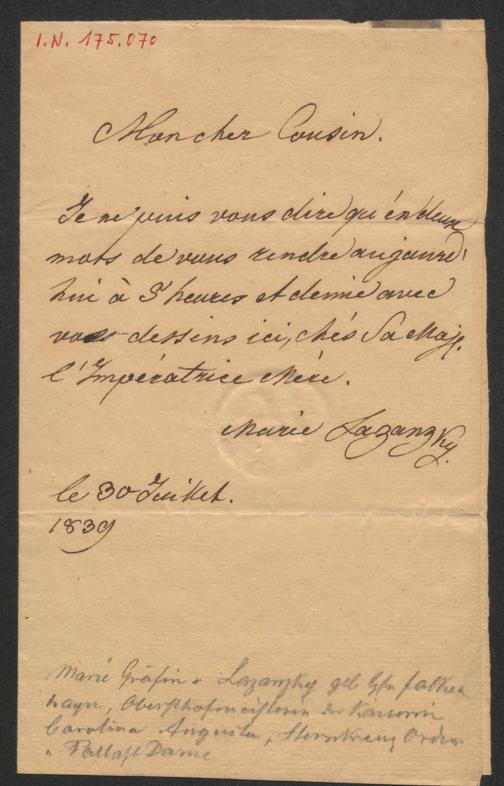 I.N. 175.070
Mon cher Cousin.
Je ne puis vous dire qu'én deux
mots de vous rendre aujourd'
hui à 5 heures et demie avec
vos dessins ici, chés Sa Maj.
l'Impératrice Mére.
Marie Lazanzky.
le 30 Juillet.
1839
Marie Gräfin v Lazanzky geb Gfn Falken
hayn, Obersthofmeisterin der Kaiserin
Carolina Augusta, Sternkreuz Ordens
u Pallast Dame